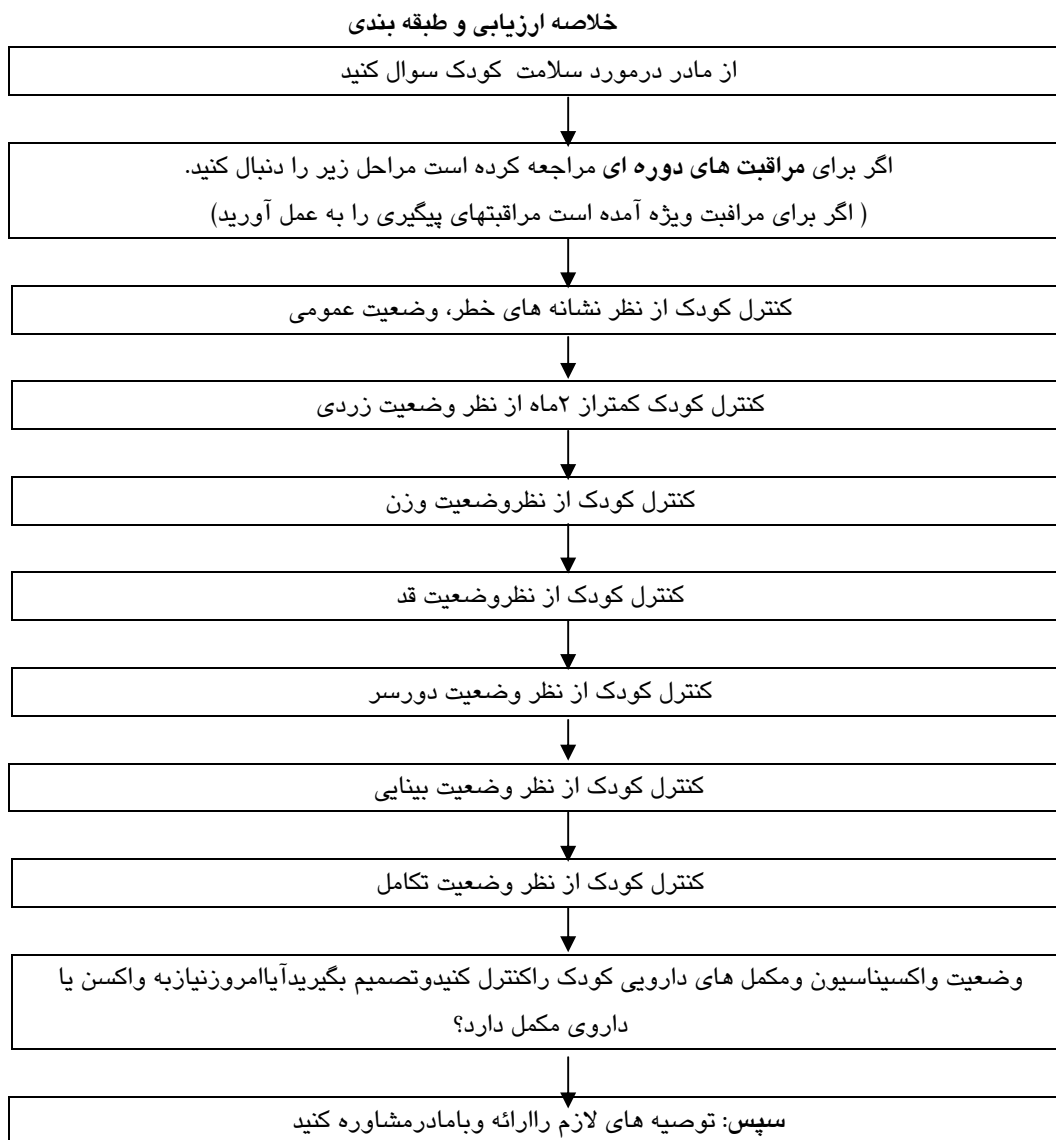 خلاصه ارزیابی و طبقه بندی
از مادر درمورد سلامت کودک سوال کنید
اگر برای مراقبت های دوره ای مراجعه کرده است مراحل زیر را دنبال کنید.
( اگر برای مرافبت ویژه آمده است مراقبتهای پیگیری را به عمل آورید)
کنترل کودک از نظر نشانه های خطر، وضعیت عمومی
کنترل کودک کمتراز ۲ماه از نظر وضعیت زردی
کنترل کودک از نظروضعیت وزن
کنترل کودک از نظروضعیت قد
کنترل کودک از نظر وضعیت دورسر
کنترل کودک از نظر وضعیت بینایی
کنترل کودک از نظر وضعیت تکامل
وضعیت واکسیناسیون ومکمل های دارویی کودک راکنترل کنیدوتصمیم بگیریدآیاامروزنیازبه واکسن یا
داروی مکمل دارد؟
سپس: توصیه های لازم راارائه وبامادرمشاوره کنید